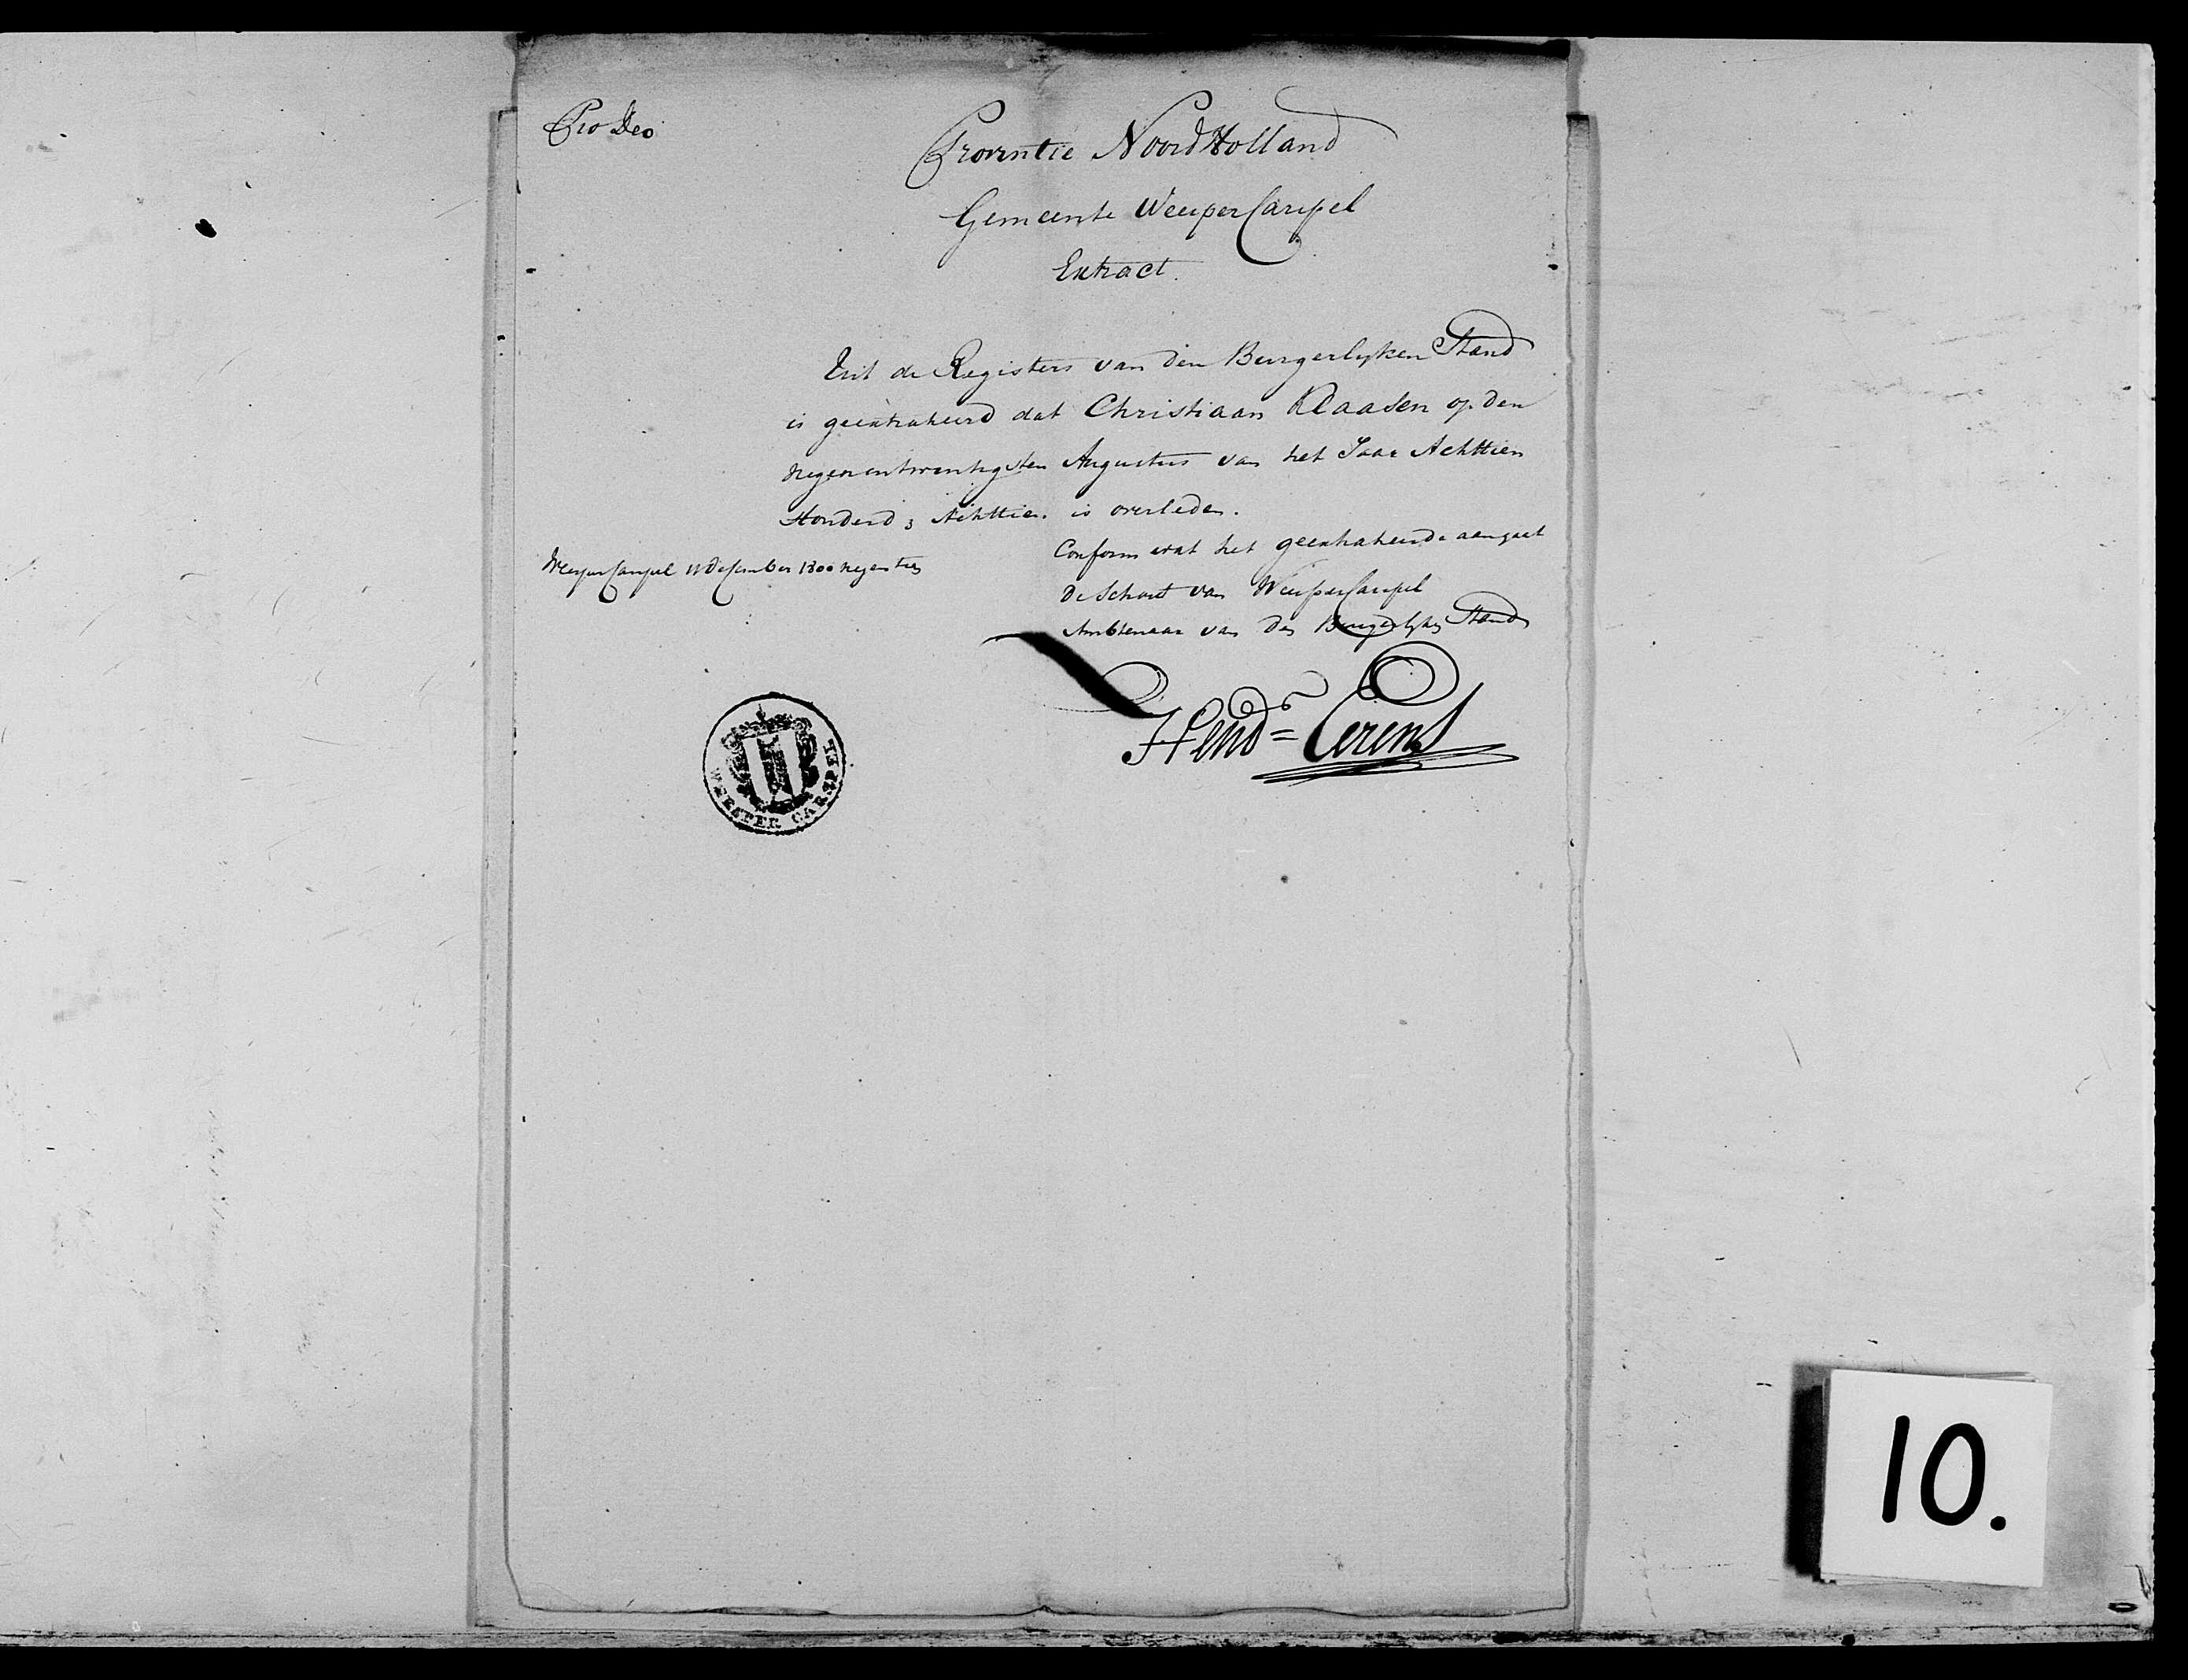 Pro Deo
Provintie Noord Holland
Gemeente WeesperCarspel
Extract.
Uit de Registers van den Burgerlyken Stand
is geextraheerd dat Christiaan Klaasen op den
negenentwentigsten Augustus van het Jaar Achttien
Honderd & Achttien is overleden.
Conform wat het geextraheerde aengaat
WeesperCarspel 11 December 1800 negentien
De Schout van WeesperCarspel
Ambtenaar van den Burgerlyken Stand
Hend=
WEESPER CARSPEL
10.